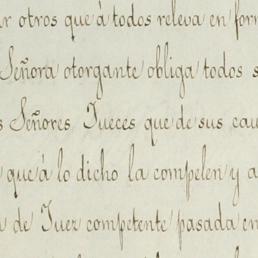 ar otros que á todos releva en form
Señora otorgante obliga todos s
s Señores Jueces que de sus cau
que á lo dicho la compelen y a
a de Juez competente pasada en